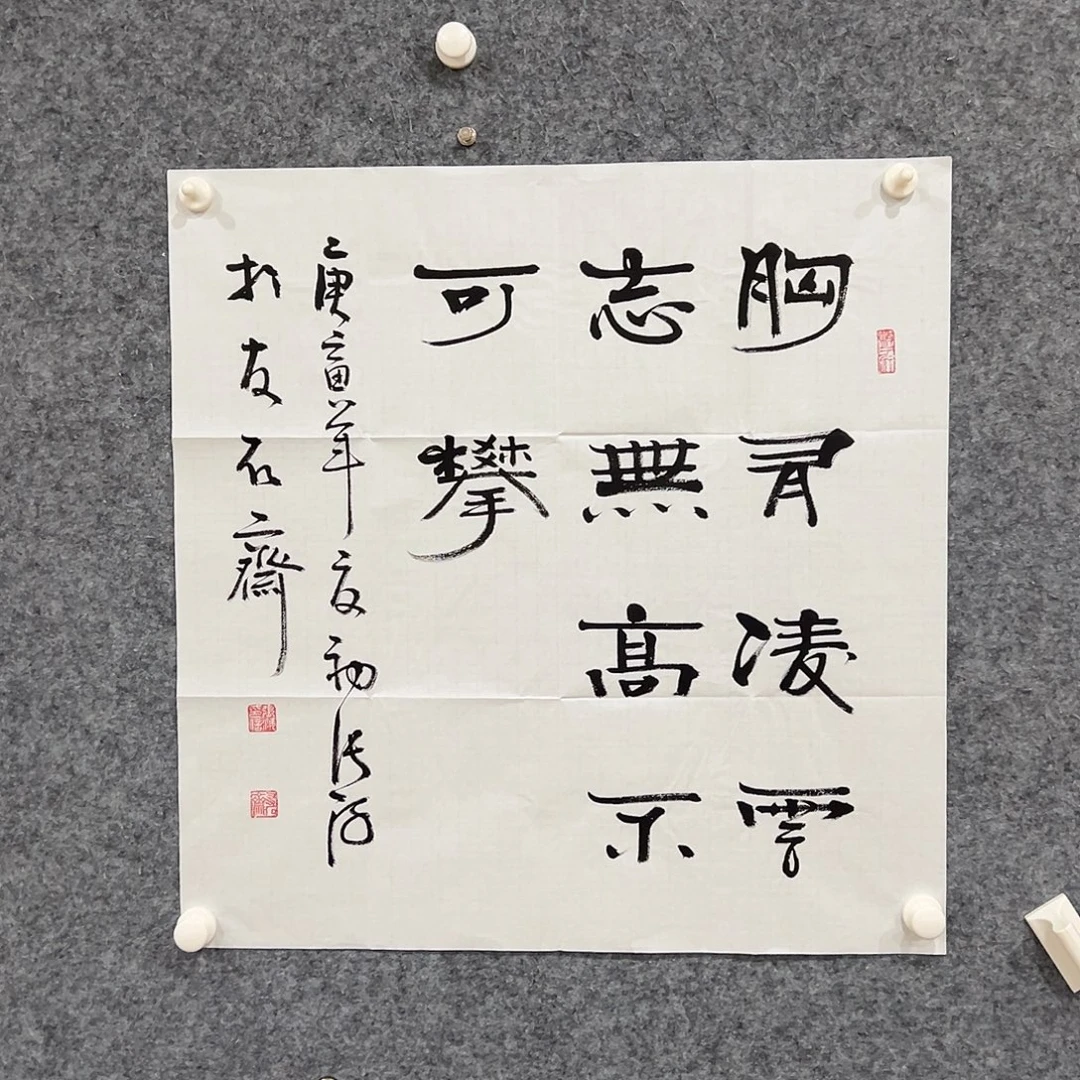 胸有凌雲
志無高不
可攀
庚寅年夏初张
於友石齋